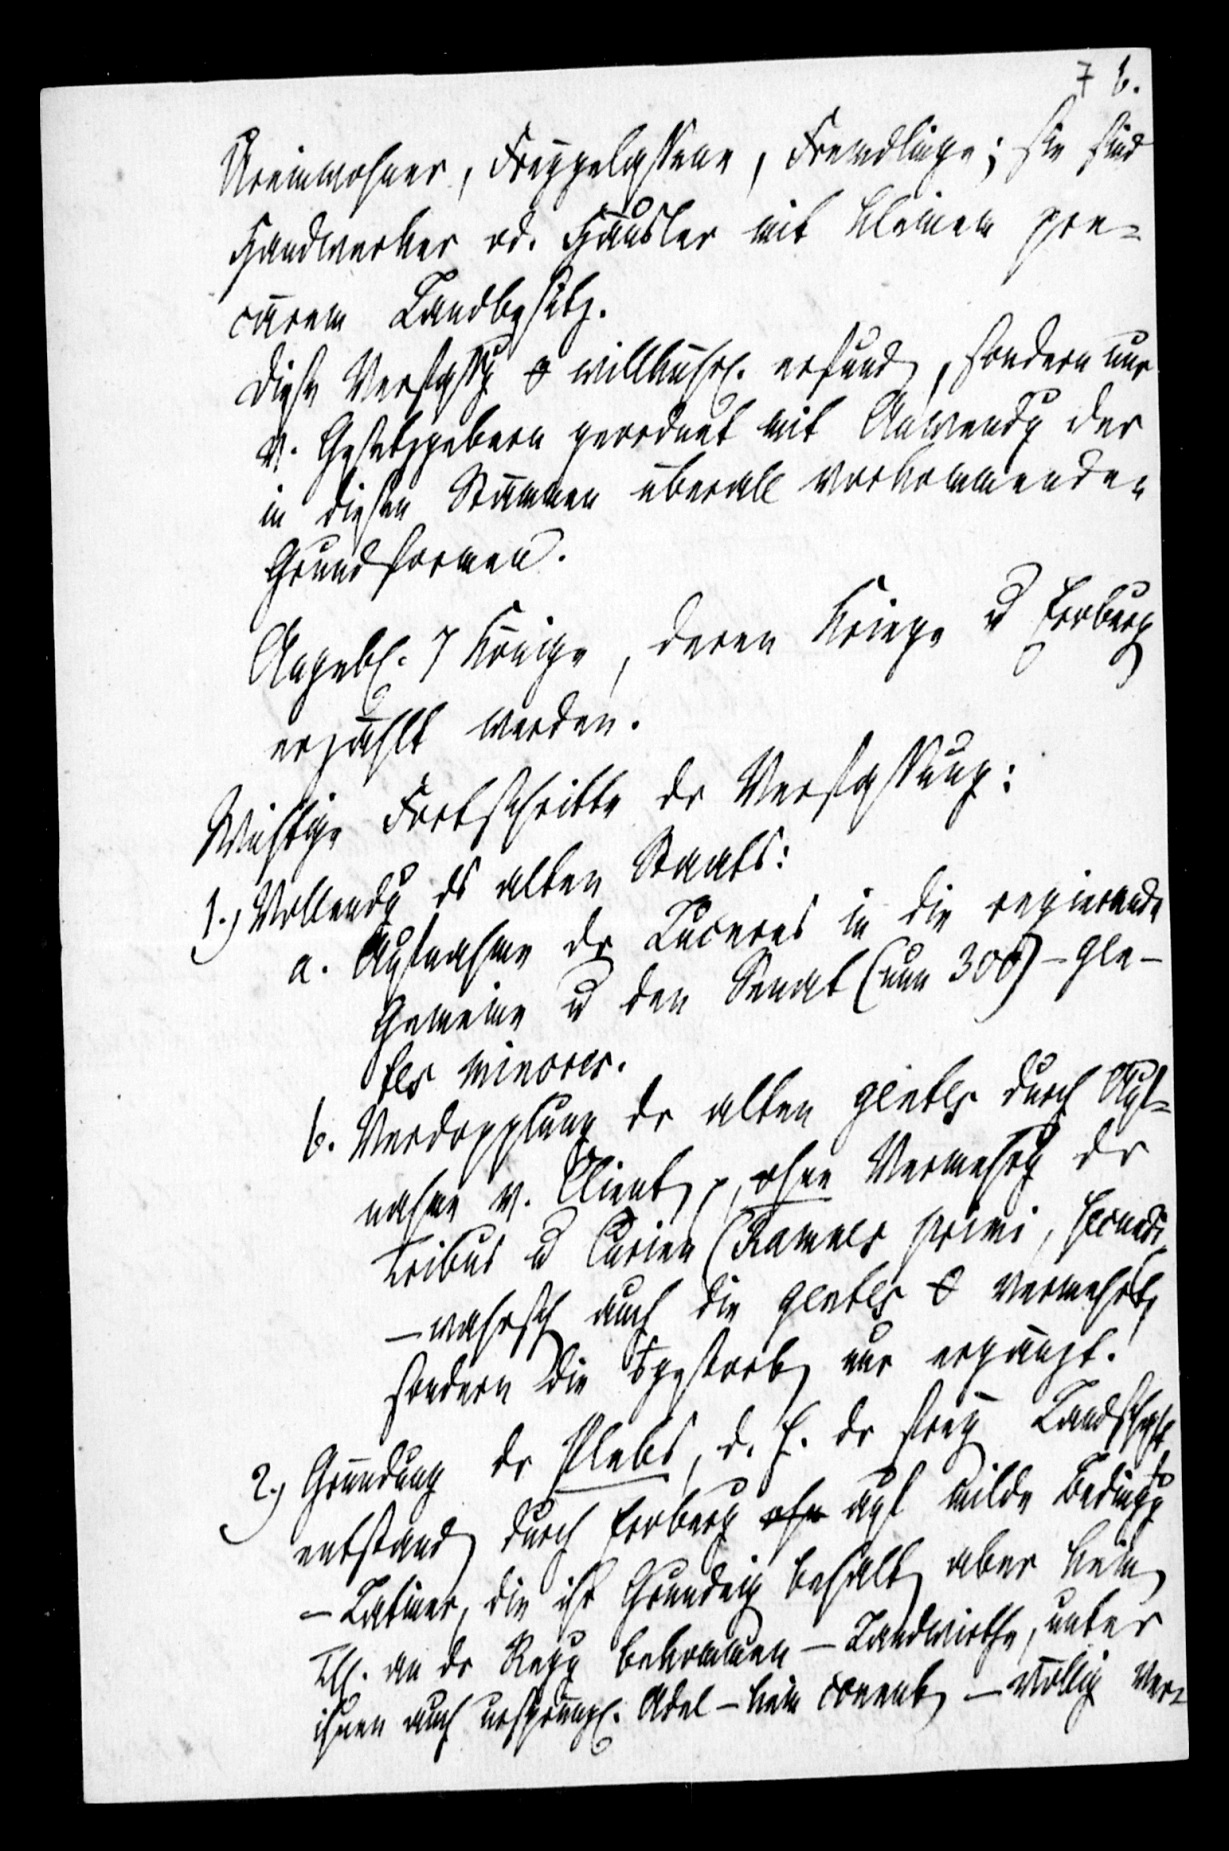 7 b.
Ureinwohner, Freygelassene, Fremdlinge; sie sind
Handwerker od. Häusler mit kleinem pre=
cärem Landbesitz.
Diese Verfassg 0 willkührl. erfund, sondern nur
v. Gesetzgebern geordnet mit Anwendg der
in diesen Stämmen überall vorkommenden
Grundformen.
Angebl. 7 Könige, deren Kriege u Erobergg
erzählt werden.
Wichtige Fortschritte dr Verfassung:
1.) Vollendg ds alten Staats:
a. Aufnahme dr Luceres in die regierende
Gemeine u den Senat (nun 300) – gen–
tes minores.
b. Verdopplung dr alten gentes durch Auf=
nahme v. Client, ohne Vermehrg dr
Tribus u Curien (Ramnes primi, secundi
– wahrsch auch die gentes 0 vermehrt,
sondern die ausgestorb nur ergänzt.
2.) Gründung dr Plebs, d. h. dr frey Landschaft
entstand durch Eroberg auf milde Bedingg
– Latiner, die ihr Grundeig behalt aber kein
Th. an dr Regg bekommen – Landwirthe, unter
ihnen auch ursprüngl. Adel – kein – völlig ver=